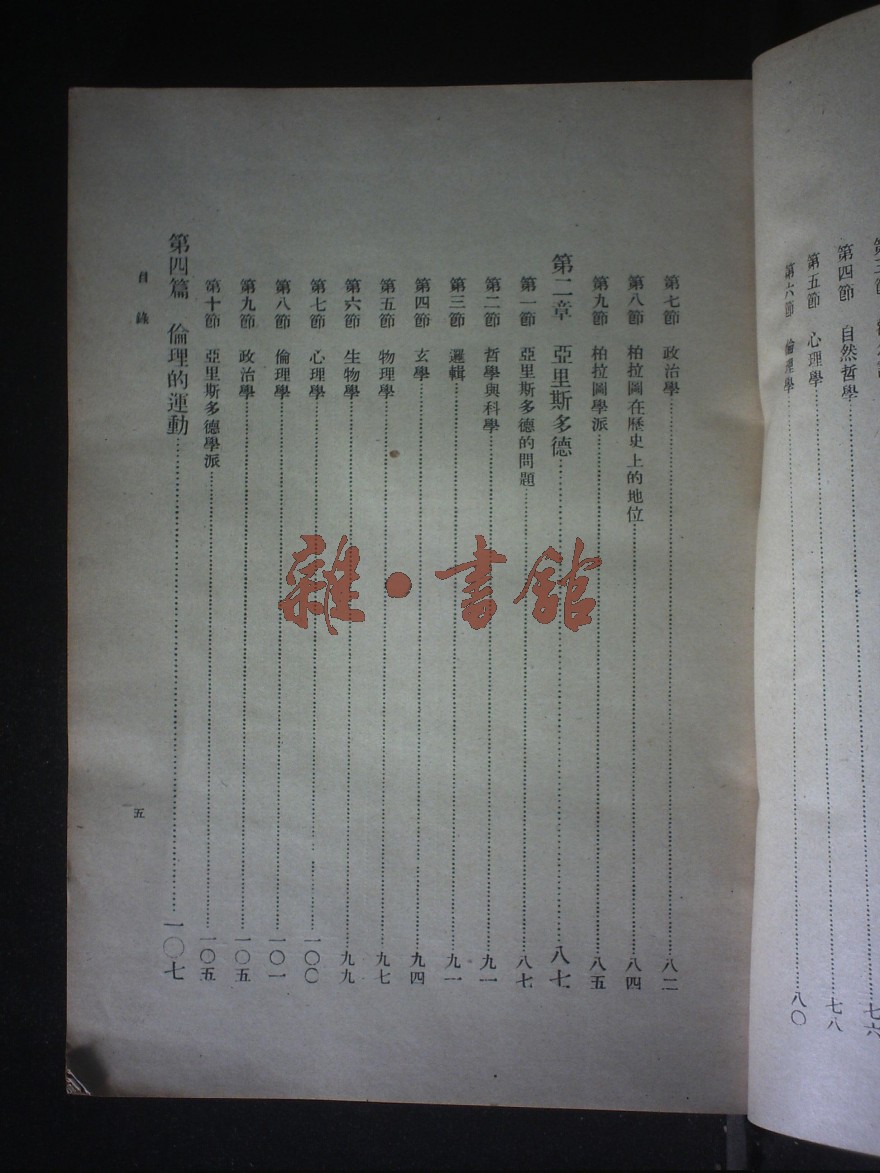 第四節 自然哲學……七六
第五節 心理學……七八
第六節 倫理學……八〇
第七節 政治學……八二
第八節 柏拉圖在歷史上的地位……八四
第九節 柏拉圖學派……八五
第二章 亞里斯多德……八七
第一節 亞里斯多德的問題……八七
第二節 哲學與科學……九一
第三節 邏輯……九一
第四節 玄學……九四
第五節 物理學……九七
第六節 生物學……九九
第七節 心理學……一〇〇
第八節 倫理學……一〇一
第九節 政治學……一〇五
第十節 亞里斯多德學派……一〇五
第四篇 倫理的運動……一〇七
目錄
五
雜·書館